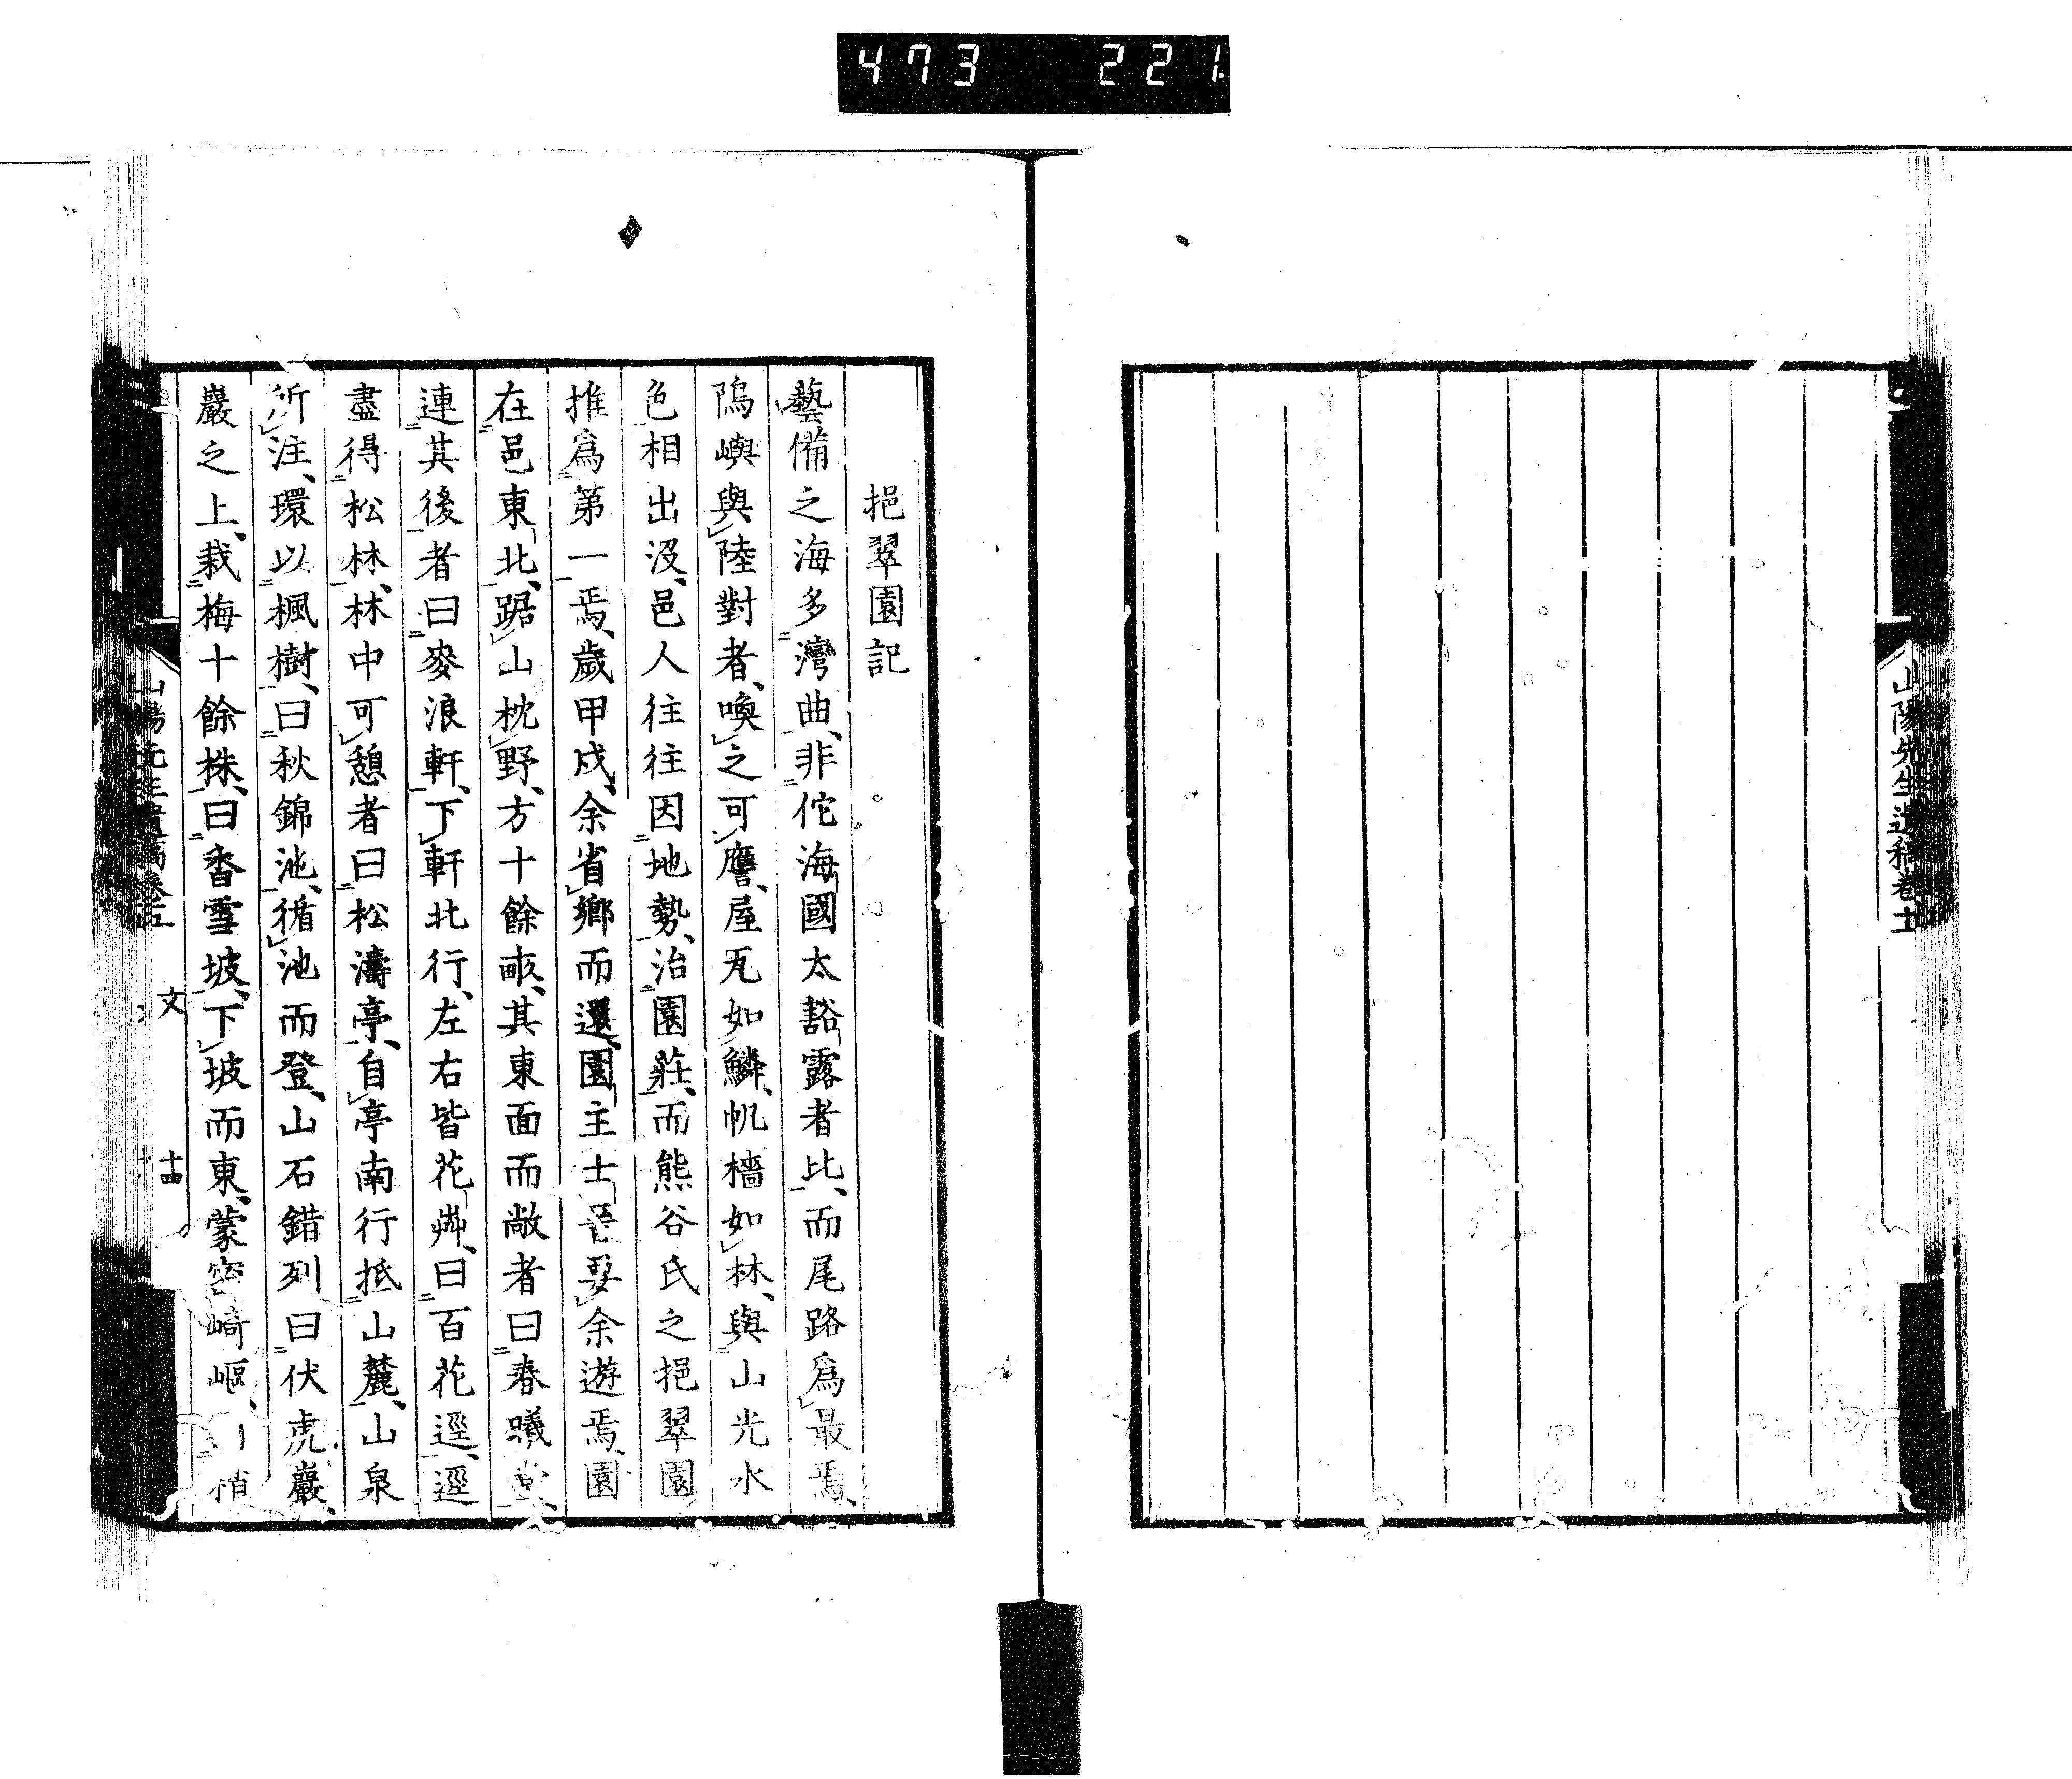 473 221
山陽先生遺稿卷
挹翠園記
藝備之海多灣曲、非佗海國太豁露者比、而尾路爲最焉、
隝嶼與陸對者、喚之可譍、屋瓦如鱗、帆檣如林、與山光水
色相出沒、邑人往往因地勢、治園莊、而熊谷氏之挹翠園
推爲第一焉、歲甲戌、余省鄉而還、園主士晉娶余遊焉、園
在邑東北、踞山枕野、方十餘畞、其東面而敞者曰春曦堂、
連其後者曰麥浪軒、下軒北行、左右皆花艸、曰百花逕、逕
盡得松林、林中可憩者曰松濤亭、自亭南行抵山麓、山泉
所注、環以楓樹、曰秋錦池、循池而登、山石錯列曰伏虎巖、
巖之上、栽梅十餘株、曰香雪坡、下坡而東、蒙密崎嶇、稍
山陽先生遺稿卷五
文
十四